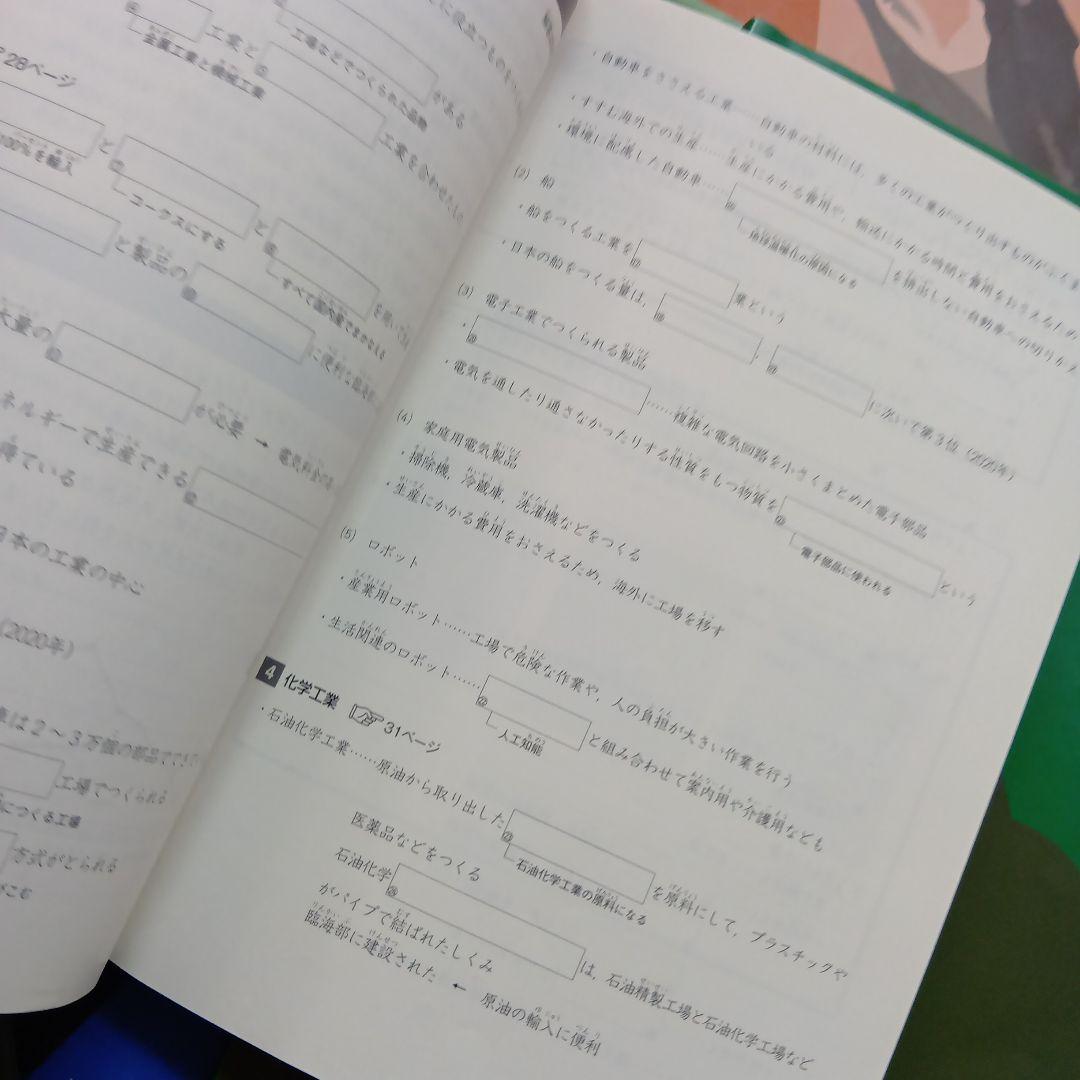 工業と
金属工業と機械工業
工場などでつくられた品物
がある
工業を合わせた
28ページ
100%を輸入
と
コークスにする
と
すべて国内産でまかなえる
と製品の
大量の
が必要 → 電気料金
ネルギーで生産できる
得ている
日本の工業の中心
(2020年)
車は2～3万個の部品でできて
工場でつくられる
につくる工場
方式がとられる
・自動車をささえる工業……自動車の材料には，多くの工業がつくり出すものがふくま
いる
・すすむ海外での生産……生産にかかる費用や，輸送にかかる時間と費用をおさえるため
・環境に配慮した自動車……
を排出しない自動車への切りかえ
地球温暖化の原因になる
(2) 船
・船をつくる工業を
業という
・日本の船をつくる量は，
，
に次いで第3位（2020年）
(3) 電子工業でつくられる製品
・
……複雑な電気回路を小さくまとめた電子部品
・電気を通したり通さなかったりする性質をもつ物質を
という
電子部品に使われる
(4) 家庭用電気製品
・掃除機，冷蔵庫，洗濯機などをつくる
・生産にかかる費用をおさえるため，海外に工場を移す
(5) ロボット
・産業用ロボット……工場で危険な作業や，人の負担が大きい作業を行う
・生活関連のロボット……
と組み合わせて案内用や介護用なども
人工知能
4 化学工業 31ページ
・石油化学工業……原油から取り出した
を原料にして，プラスチックや
石油化学工業の原料になる
医薬品などをつくる
石油化学
は，石油精製工場と石油化学工場など
がパイプで結ばれたしくみ
臨海部に建設された ← 原油の輸入に便利